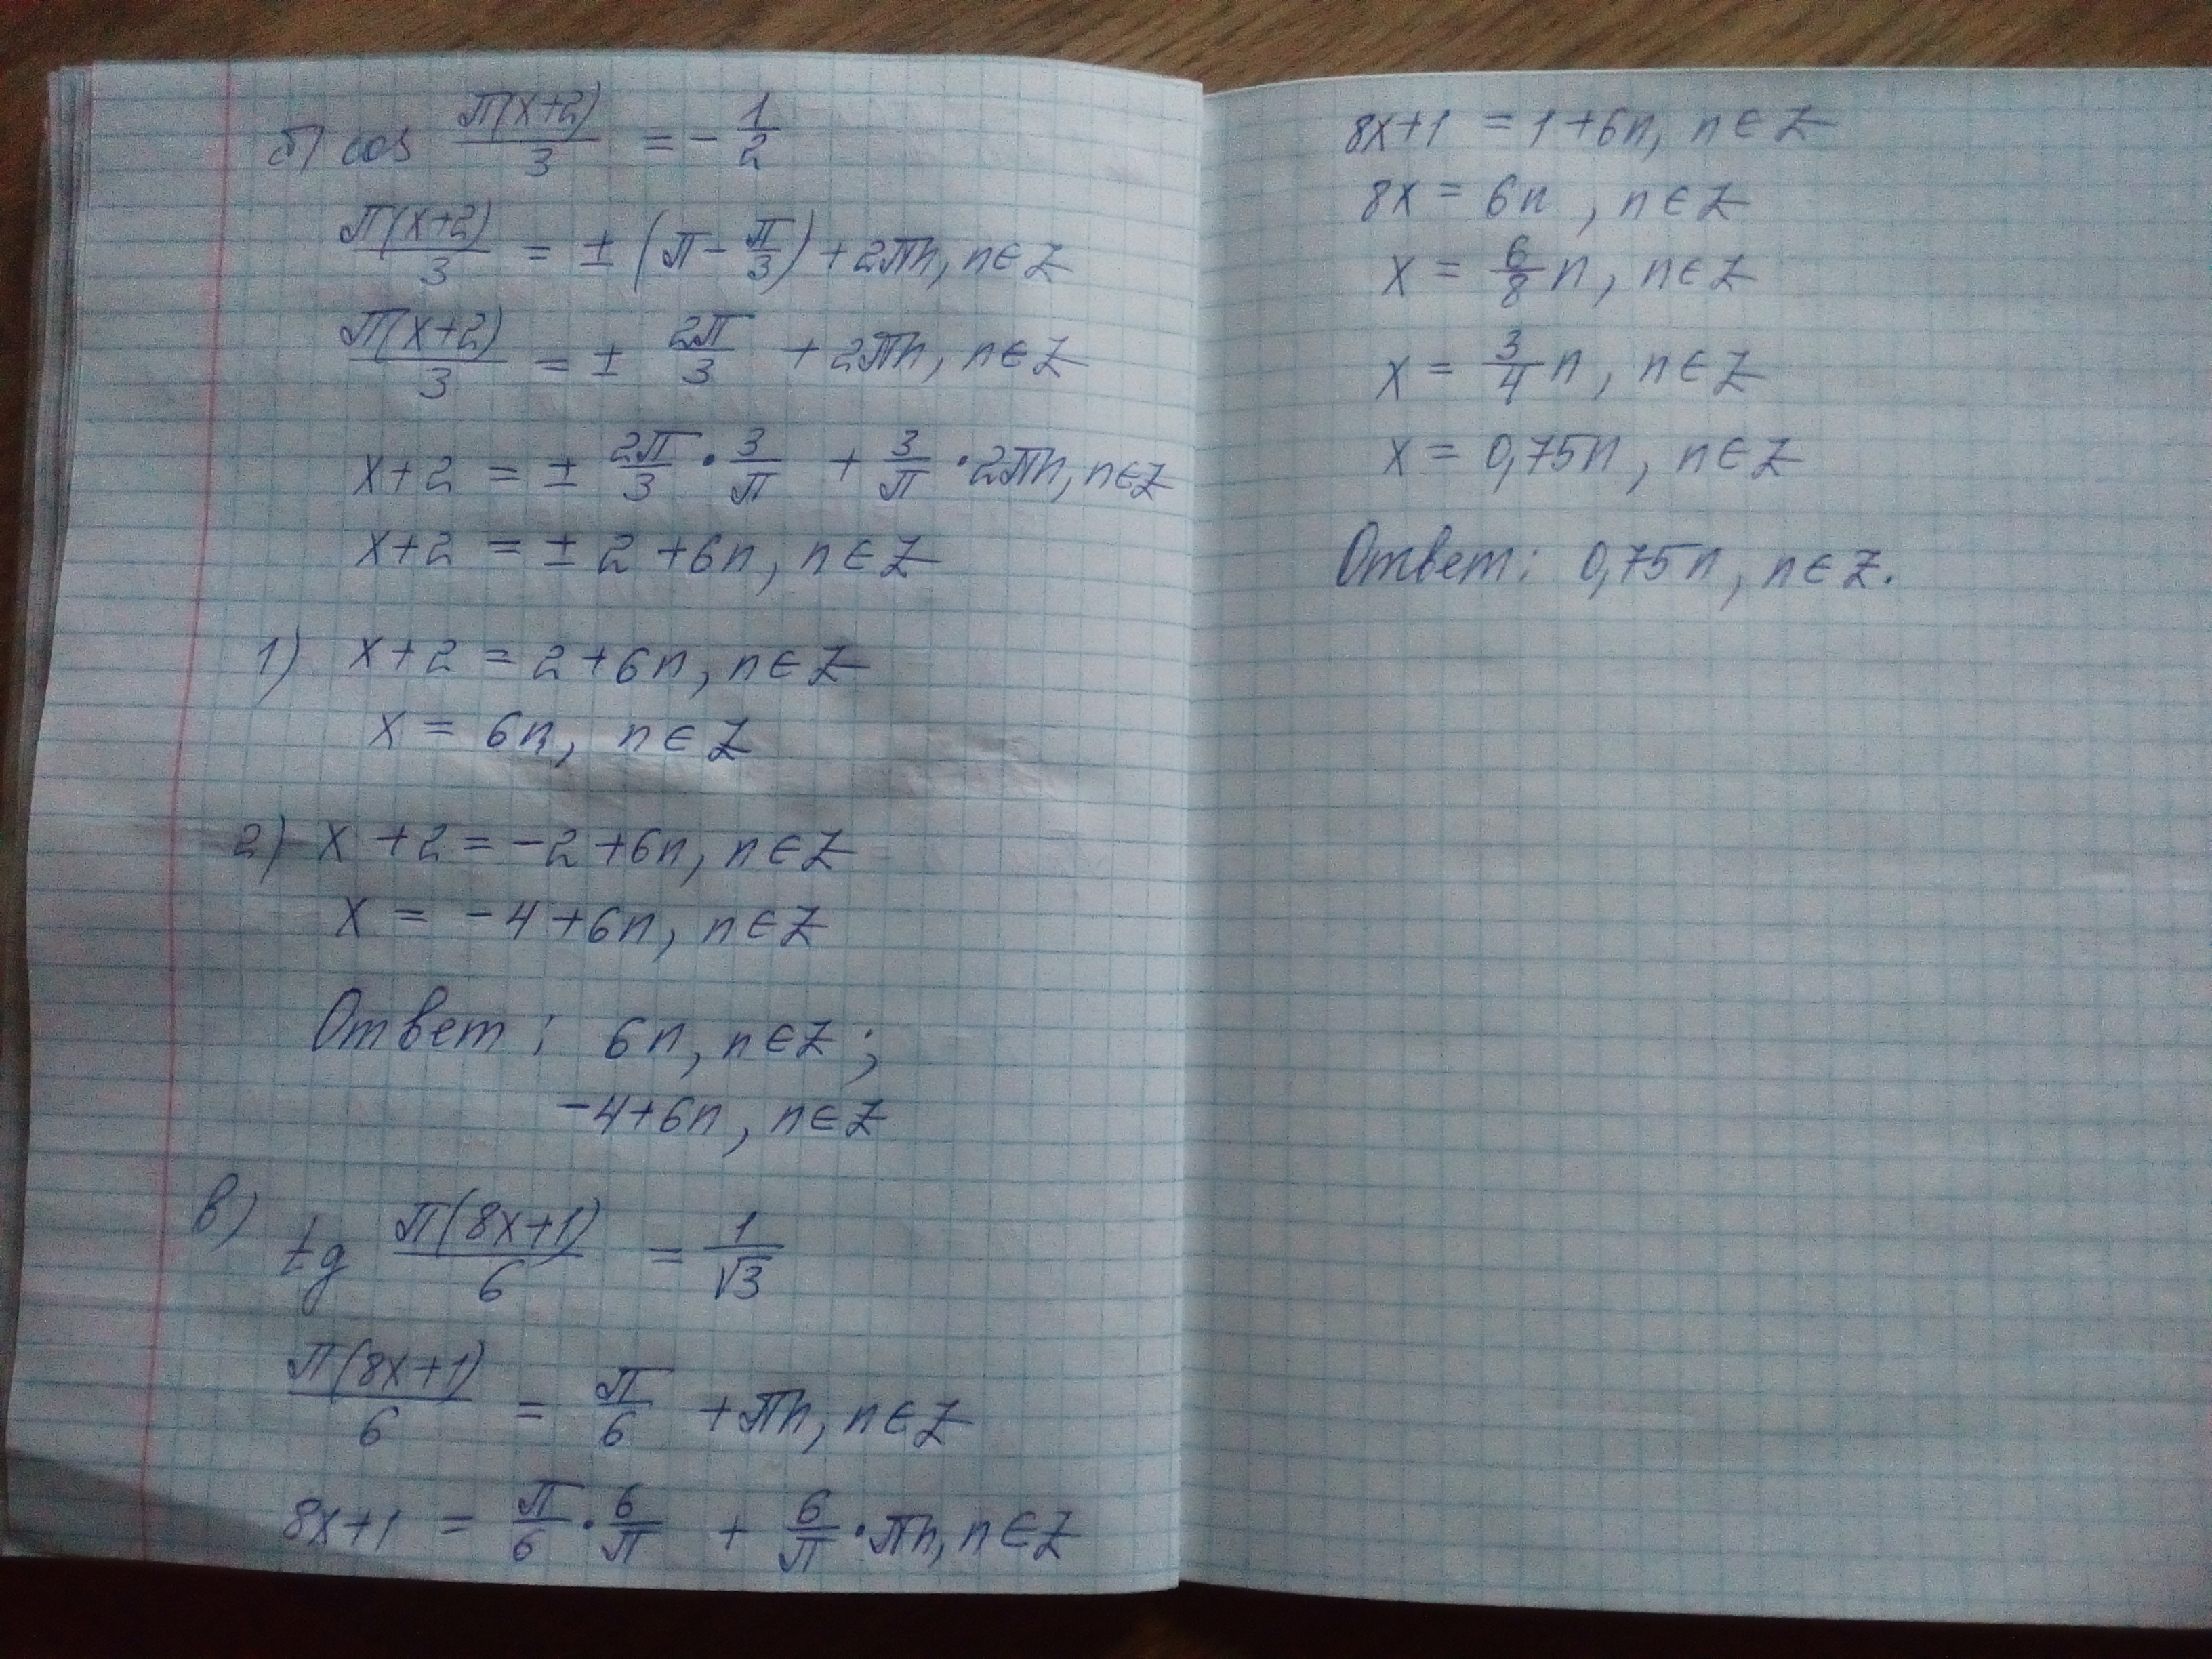 б) cos π(x+2)/3 = - 1/2
π(x+2)/3 = ± (π - π/3) + 2πn, n∈Z
π(x+2)/3 = ± 2π/3 + 2πn, n∈Z
x+2 = ± 2π/3 · 3/π + 3/π · 2πn, n∈Z
x+2 = ± 2 + 6n, n∈Z
1) x+2 = 2+6n, n∈Z
x = 6n, n∈Z
2) x+2 = -2+6n, n∈Z
x = -4+6n, n∈Z
Ответ: 6n, n∈Z;
-4+6n, n∈Z
в) tg π(8x+1)/6 = 1/√3
π(8x+1)/6 = π/6 + πn, n∈Z
8x+1 = π/6 · 6/π + 6/π · πn, n∈Z
8x+1 = 1+6n, n∈Z
8x = 6n, n∈Z
x = 6/8 n, n∈Z
x = 3/4 n, n∈Z
x = 0,75n, n∈Z
Ответ: 0,75n, n∈Z.